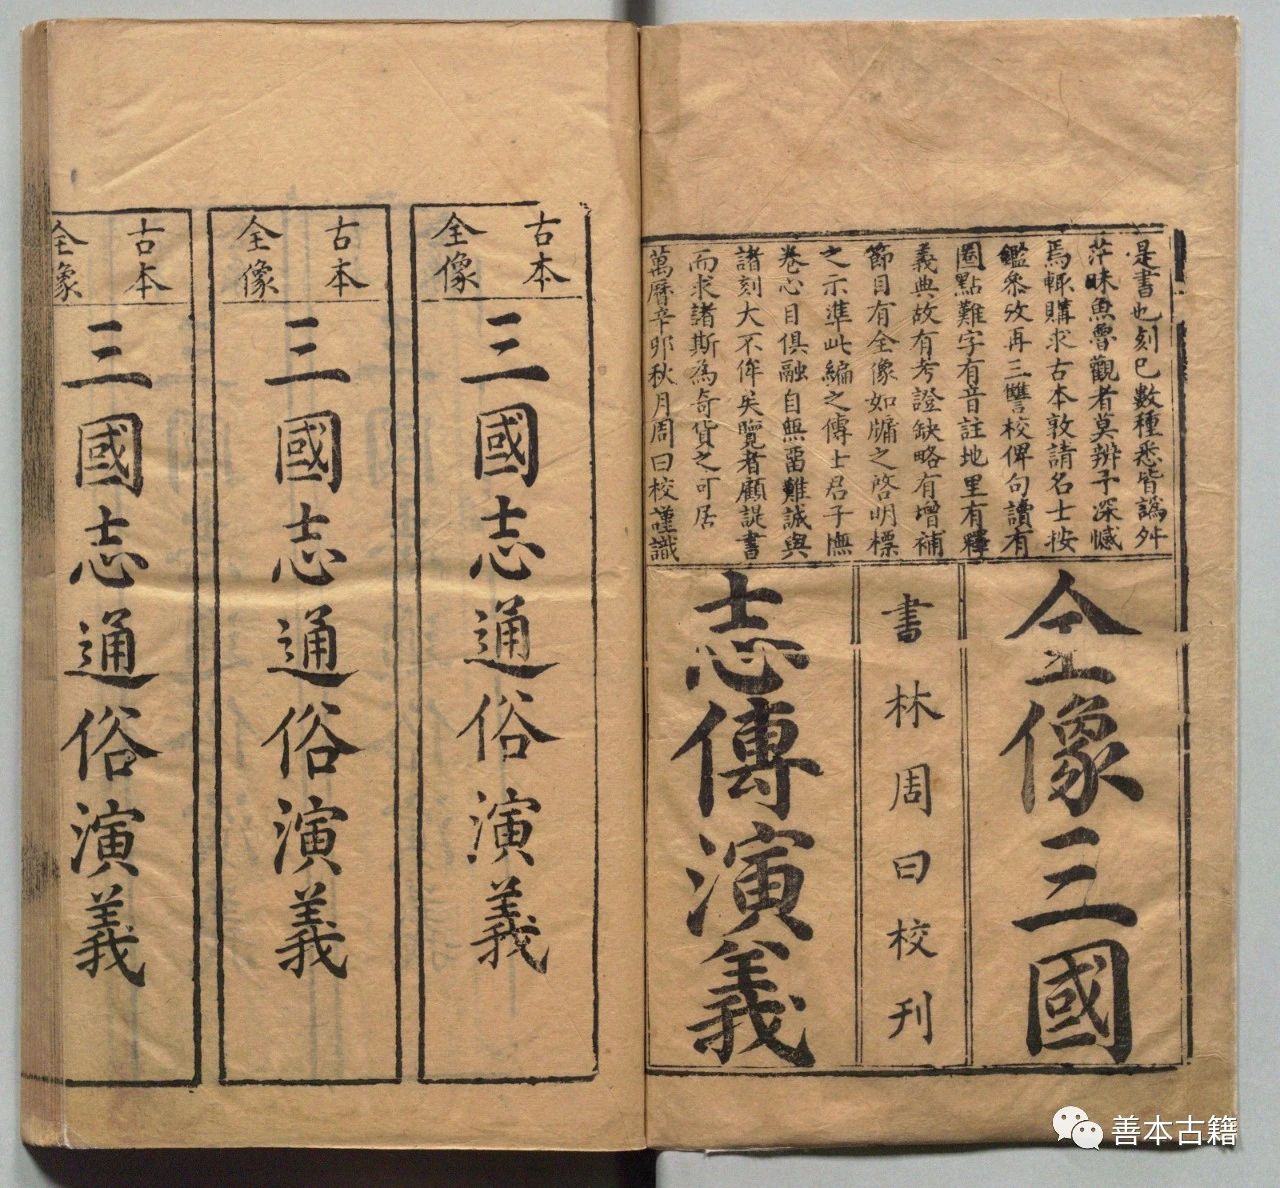 是書也刻已數種悉皆譌舛
茫昧魚魯觀者莫辨予深憾
焉輒購求古本敦請名士按
鑑參攷再三讐校俾句讀有
圈點難字有音註地里有釋
義典故有考證缺略有增補
節目有全像如牖之啓明標
之示準此編之傳士君子撫
卷心目俱融自無留難誠與
諸刻大不侔矣覽者顧諟書
而求諸斯為奇貨之可居
萬曆辛卯秋月周曰校謹識
全像三國
書林周曰校刊
志傳演義
古本
全像
三國志通俗演義
古本
全像
三國志通俗演義
古本
全像
三國志通俗演義
善本古籍